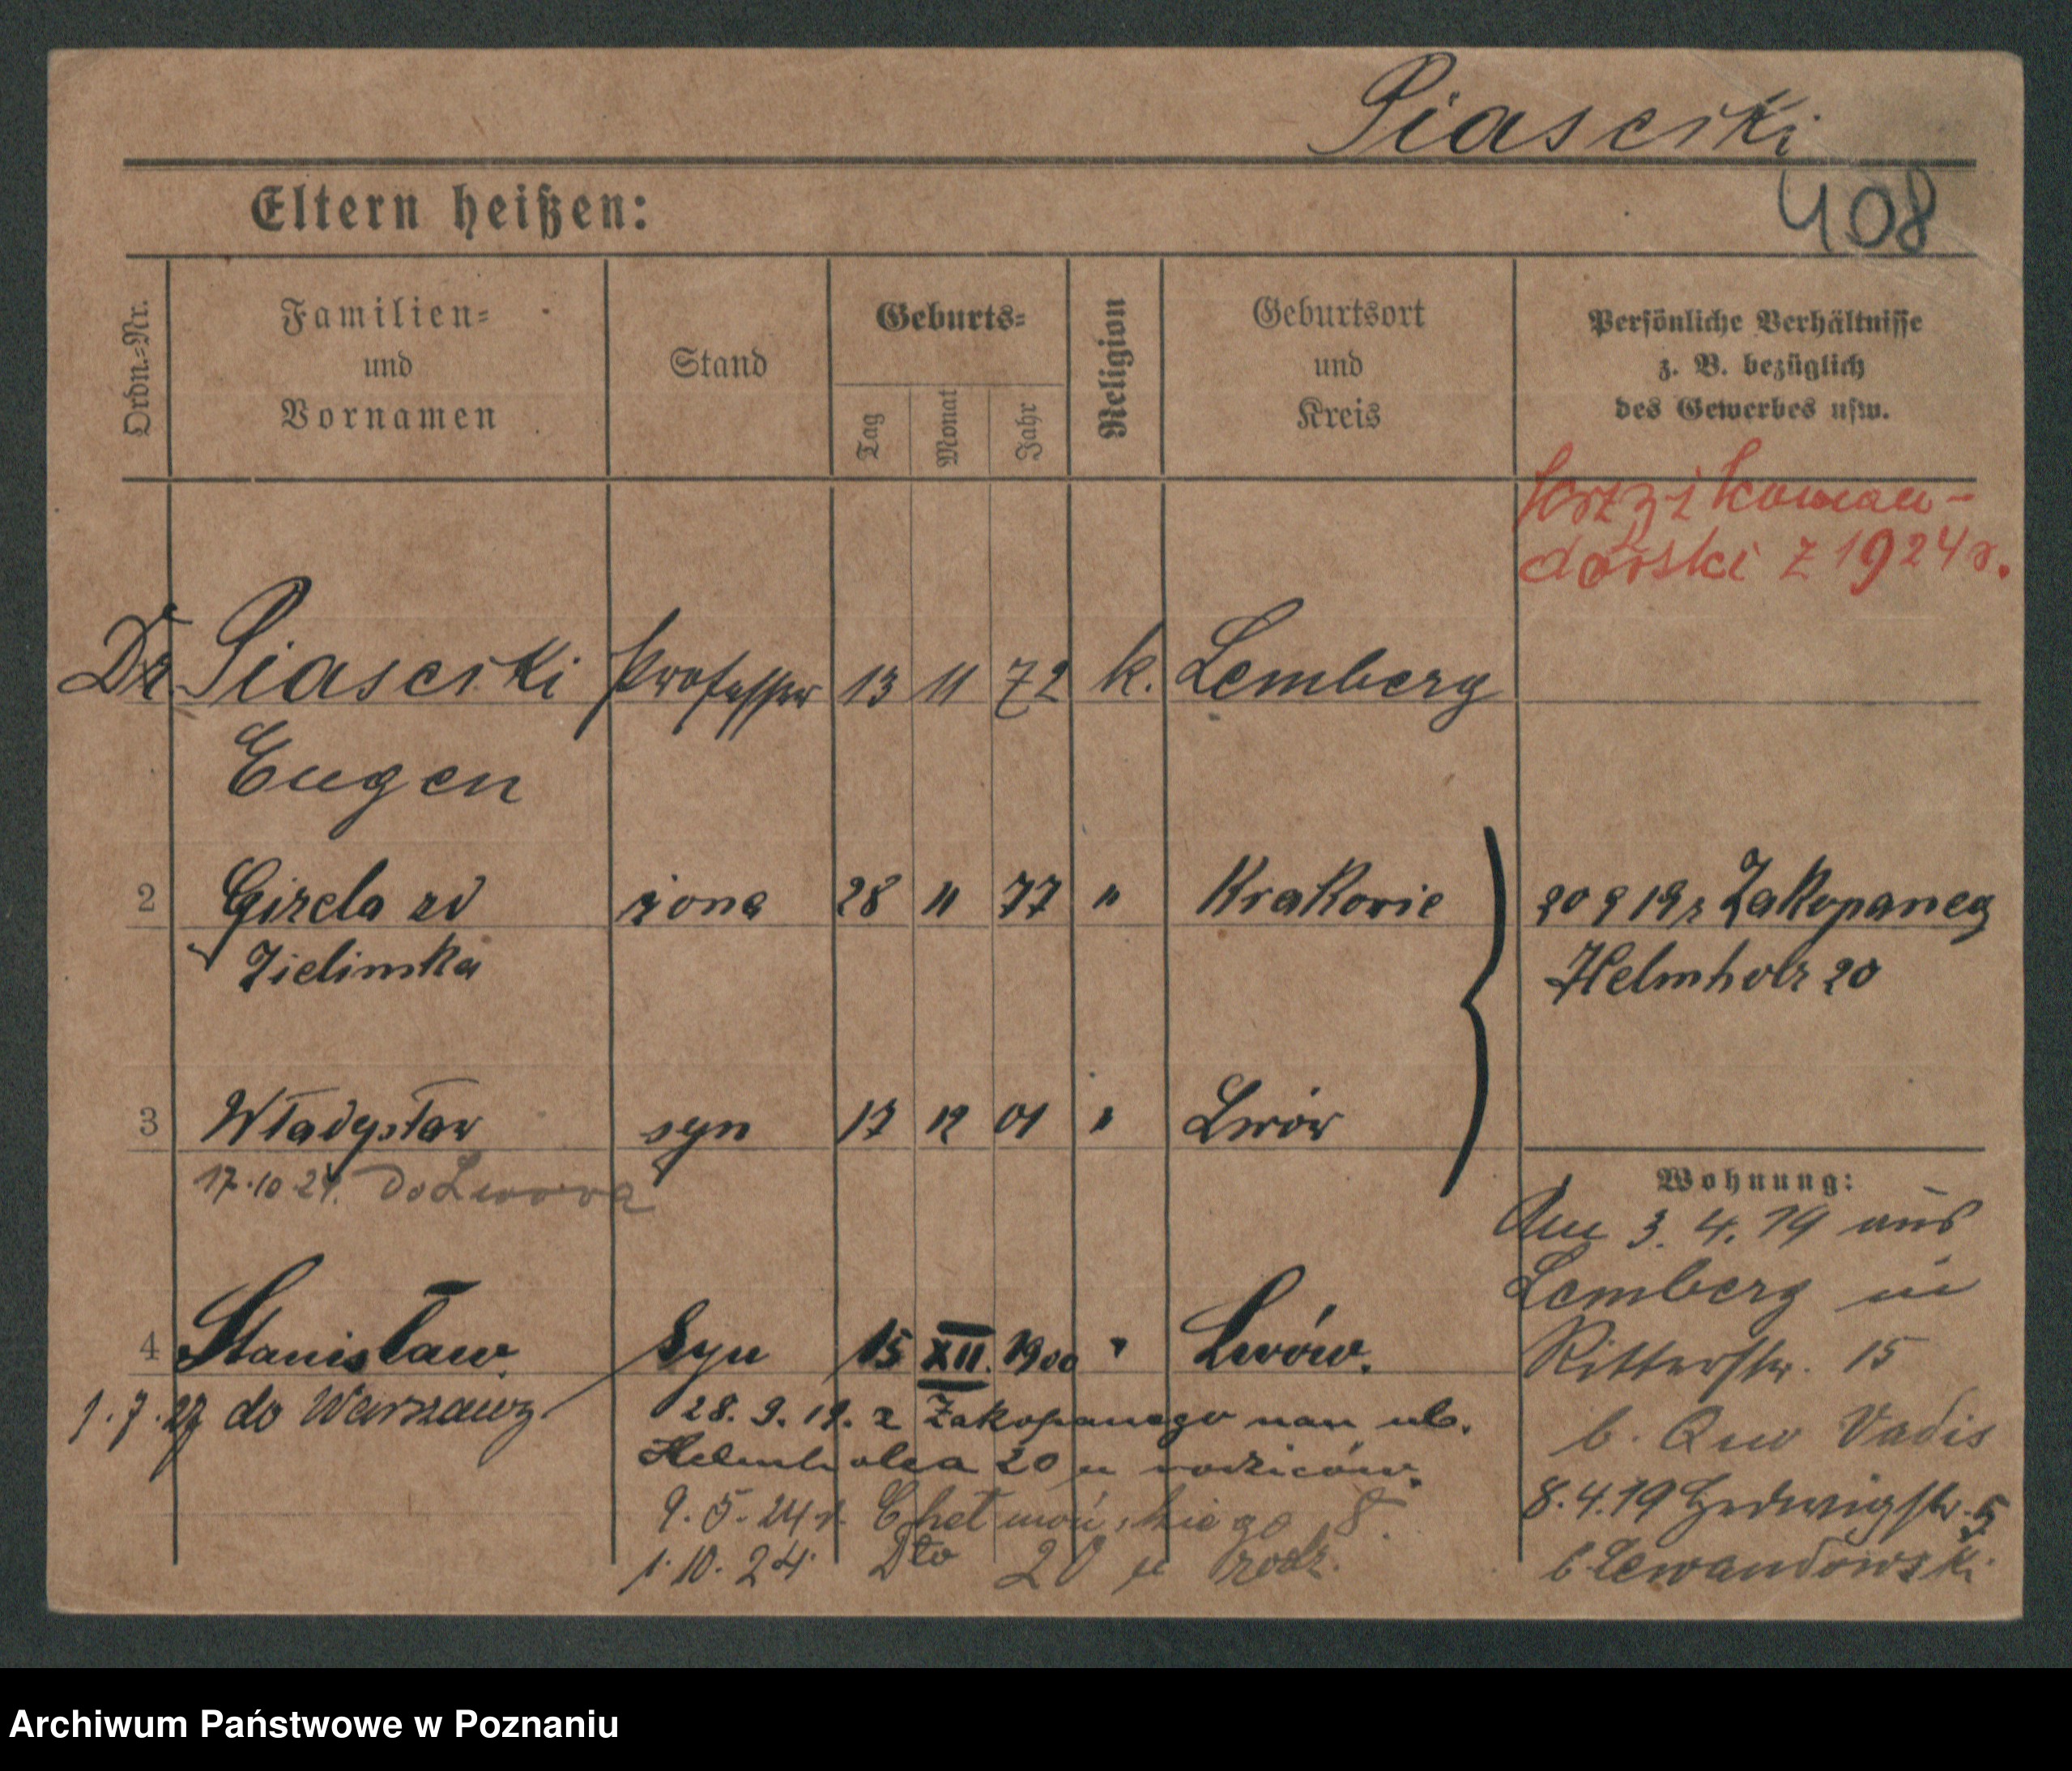 Piasecki
408
Eltern heißen:
Ordn.=Nr.
Familien=
und
Vornamen
Stand
Geburts=
Tag
Monat
Jahr
Religion
Geburtsort
und
Kreis
Persönliche Verhältnisse
z. B. bezüglich
des Gewerbes usw.
koman-
dorski z 1924 r.
Dr Piasecki Professor 13 11 72 k. Lemberg
Eugen
2 Gizela zd żona 28 11 77 " Krakowie 20 9 19 z Zakopaneg
Zielinska Helmholz 20
3 Władysław syn 17 12 01 " Lwów
17.10.24. do Lwowa
Wohnung:
Am 3. 4. 19 aus
Lemberg in
4 Stanisław syn 15 XII. 1900 " Lwów.
Ritterstr. 15
1.7.27 do Warszawy
28. 9. 19. z Zakopanego nan ul.
Helmholca 20 u rodziców.
9. 5. 24 r. Chełmońskiego 8.
1. 10. 24 Dto 20 u rodz.
b. Quo Vadis
8.4.19 Hedwigstr. 5
b Lewandowski
Archiwum Państwowe w Poznaniu